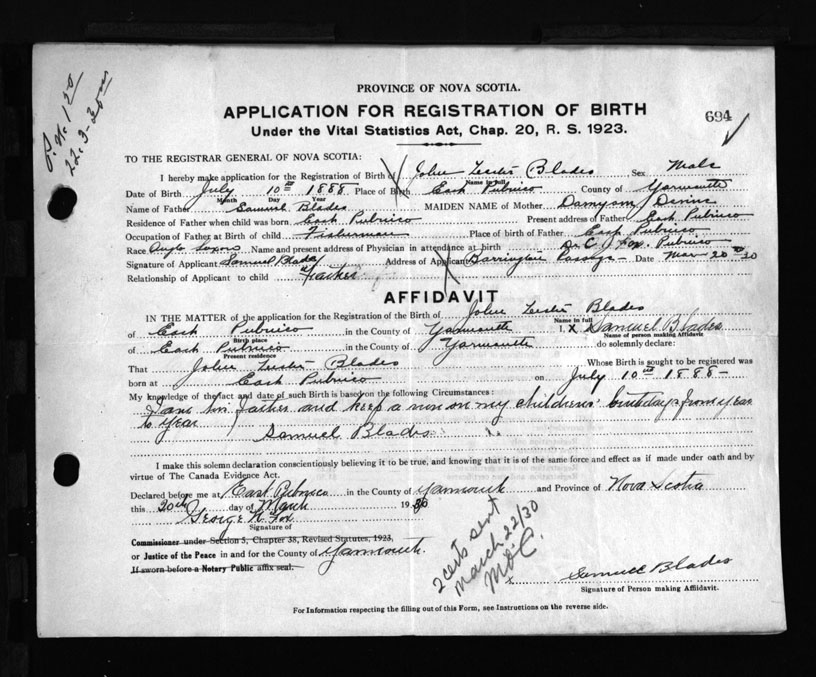 PROVINCE OF NOVA SCOTIA.
APPLICATION FOR REGISTRATION OF BIRTH
694
Under the Vital Statistics Act, Chap. 20, R. S. 1923.
TO THE REGISTRAR GENERAL OF NOVA SCOTIA:
I hereby make application for the Registration of Birth of John Leslie Blades Sex Male
Name in full
Date of Birth July 10th 1888 Place of Birth East Pubnico County of Yarmouth
Month Day Year
Name of Father Samuel Blades MAIDEN NAME of Mother
Residence of Father when child was born East Pubnico Present address of Father East Pubnico
Occupation of Father at Birth of child Fisherman Place of birth of Father East Pubnico
Race Anglo Name and present address of Physician in attendance at birth Dr C. J. Fox. Pubnico
Signature of Applicant Samuel Blades Address of Applicant Barrington Passage Date Mar 20th 30
Relationship of Applicant to child Father
AFFIDAVIT
IN THE MATTER of the application for the Registration of the Birth of John Leslie Blades
Name in full
of East Pubnico in the County of Yarmouth I. X Samuel Blades
Birth place Name of person making Affidavit
of East Pubnico in the County of Yarmouth do solemnly declare:
Present residence
That John Leslie Blades Whose Birth is sought to be registered was
born at East Pubnico on July 10th 1888
My knowledge of the fact and date of such Birth is based on the following Circumstances:
I am his father and keep a run on my childrens' birthdays from year
to year
Samuel Blades
I make this solemn declaration conscientiously believing it to be true, and knowing that it is of the same force and effect as if made under oath and by
virtue of The Canada Evidence Act.
Declared before me at East Pubnico in the County of Yarmouth and Province of Nova Scotia
this 20th day of March 1930
George N. Fox
Signature of
Commissioner under Section 5, Chapter 38, Revised Statutes, 1923,
or Justice of the Peace in and for the County of Yarmouth.
If sworn before a Notary Public affix seal.
2 certs sent
March 22/30
x Samuel Blades
Signature of Person making Affidavit.
For Information respecting the filling out of this Form, see Instructions on the reverse side.